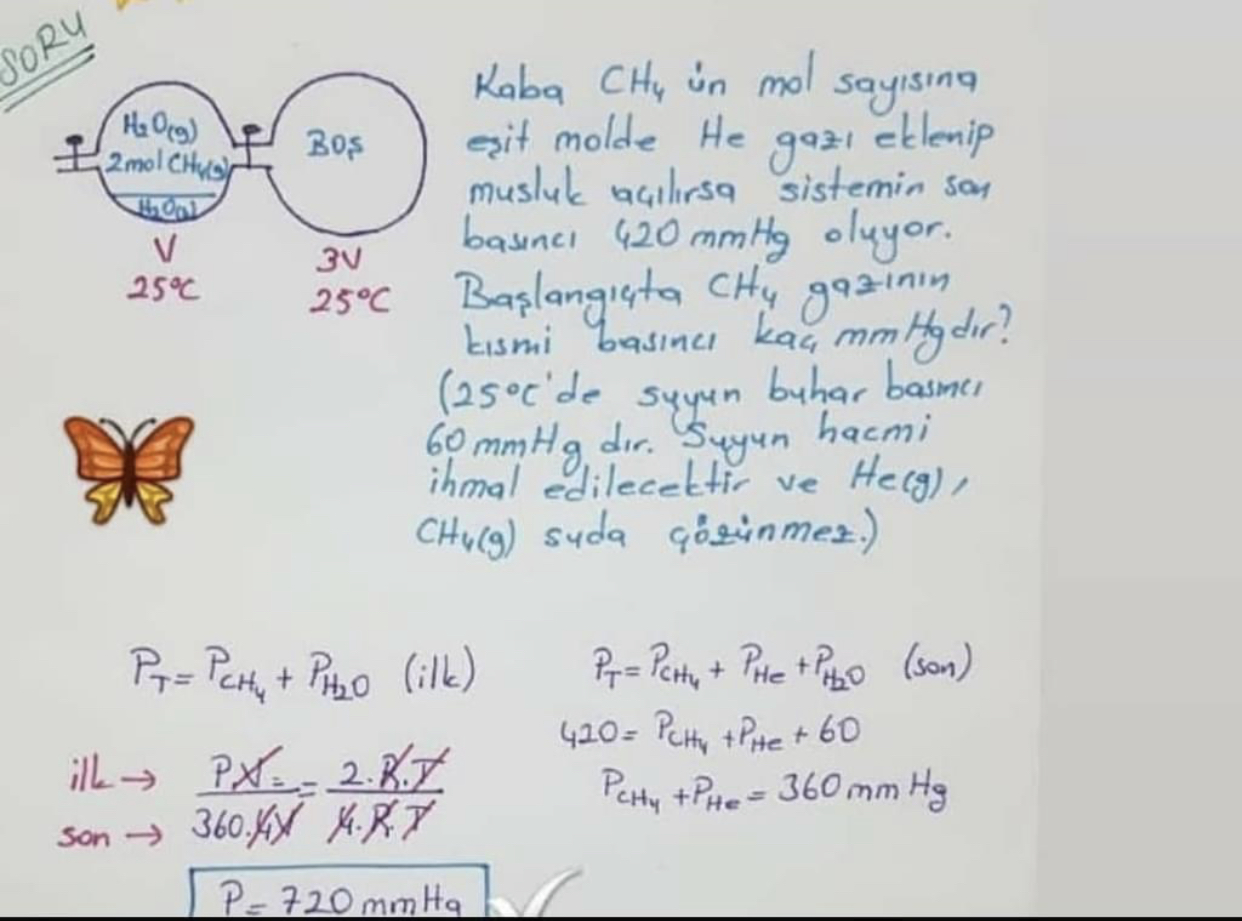 SORU
H₂O(g)
2mol CH₄(g)
H₂O(s)
Boş
V
25°C
3V
25°C
Kaba CH₄ ün mol sayısına
eşit molde He gazı eklenip
musluk açılırsa sistemin son
basıncı 420 mmHg oluyor.
Başlangıçta CH₄ gazının
kısmi basıncı kaç mmHg dır?
(25°C'de suyun buhar basıncı
60 mmHg dır. Suyun hacmi
ihmal edilecektir ve He(g),
CH₄(g) suda çözünmez.)
P_T = P_CH₄ + P_H₂O (ilk)
ilk → P.V = 2.R.T
son → 360.4V 4.R.T
P = 720 mmHg
P_T = P_CH₄ + P_He + P_H₂O (son)
420 = P_CH₄ + P_He + 60
P_CH₄ + P_He = 360 mm Hg